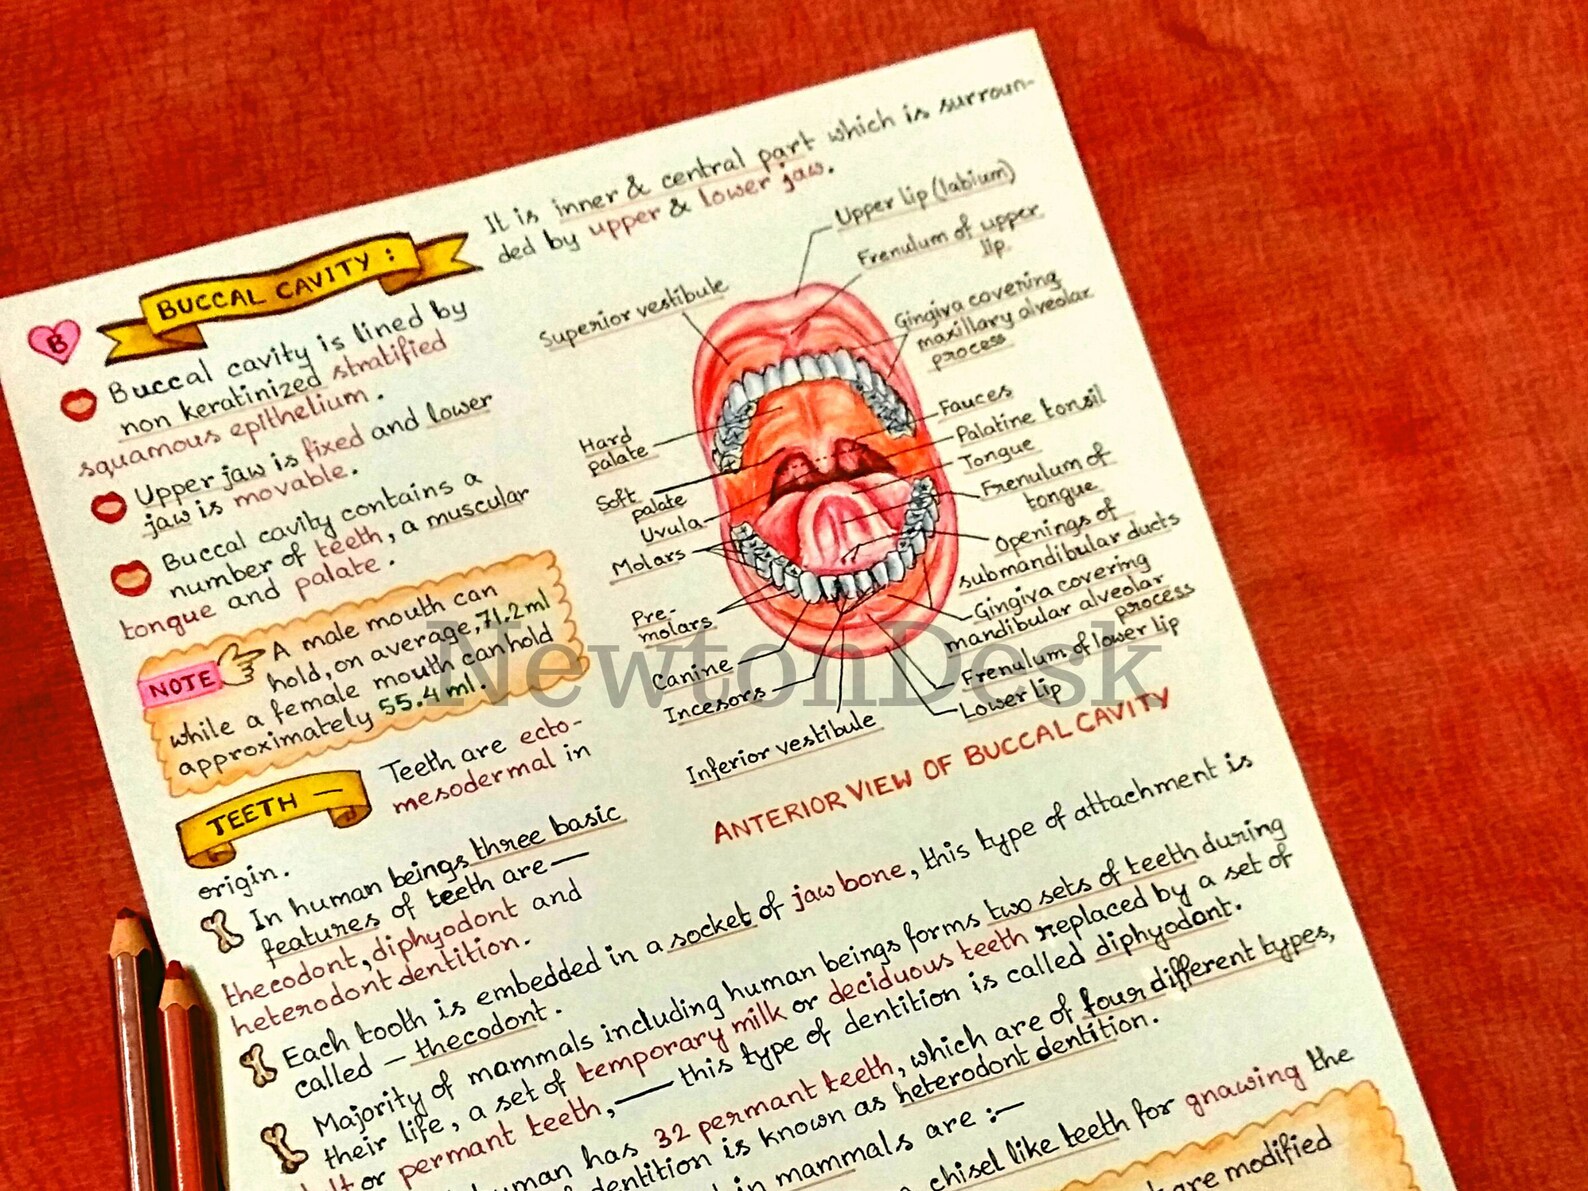 It is inner & central part which is surroun-
ded by upper & lower jaw.
BUCCAL CAVITY :
B
Buccal cavity is lined by
non keratinized stratified
squamous epithelium.
Upper jaw is fixed and lower
jaw is movable.
Buccal cavity contains a
number of teeth, a muscular
tongue and palate.
NOTE
A male mouth can
hold, on average, 71.2 ml
while a female mouth can hold
approximately 55.4 ml.
Superior vestibule
Hard
palate
Soft
palate
Uvula
Molars
Pre-
molars
Canine
Incesors
Inferior vestibule
Upper lip (labium)
Frenulum of upper
lip
Gingiva covering
maxillary alveolar
process
Fauces
Palatine tonsil
Tongue
Frenulum of
tongue
Openings of
submandibular ducts
Gingiva covering
mandibular alveolar
process
Frenulum of lower lip
Lower lip
ANTERIOR VIEW OF BUCCAL CAVITY
NewtonDesk
TEETH —
Teeth are ecto-
mesodermal in
origin.
In human beings three basic
features of teeth are —
thecodont, diphyodont and
heterodont dentition.
Each tooth is embedded in a socket of jaw bone, this type of attachment is
called — thecodont.
Majority of mammals including human beings forms two sets of teeth during
their life, a set of temporary milk or deciduous teeth replaced by a set of
or permant teeth, — this type of dentition is called diphyodont.
human has 32 permant teeth, which are of four different types,
dentition is known as heterodont dentition.
in mammals are :—
chisel like teeth for gnawing the
are modified